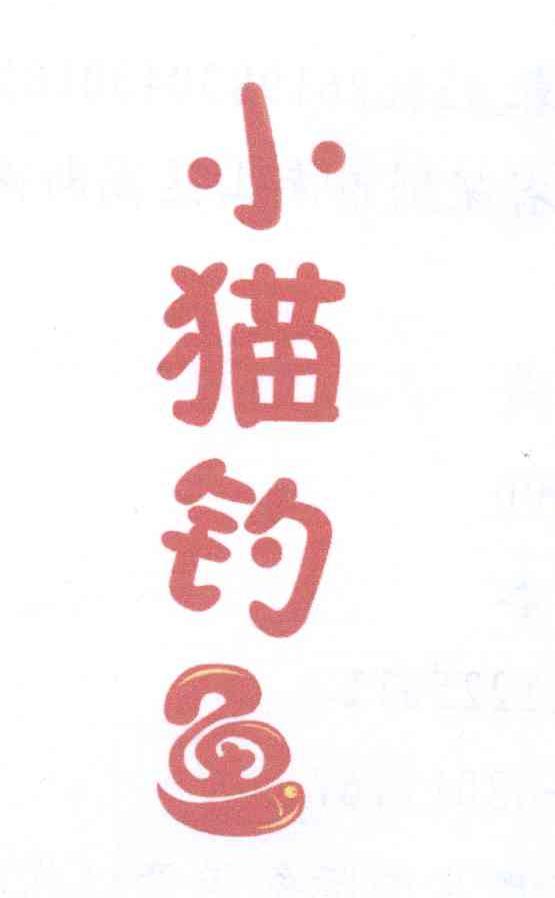 小猫钓鱼